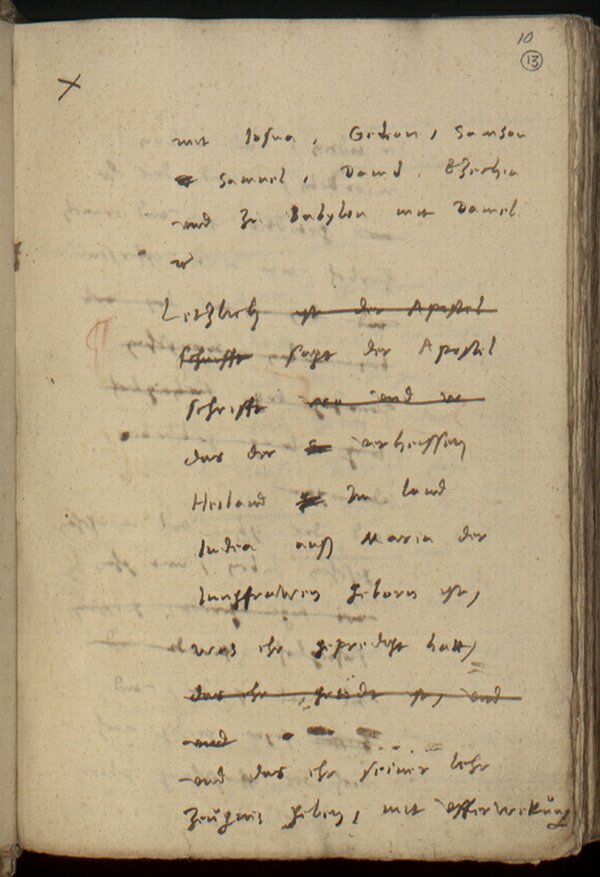 10
13
mit Josua, Gedeon, Samson
Samuel, Dauid, Ezechia
und zu Babylon mit Daniel
Letzlich ist der Apostel
schrifft sagt der Apostel
schrifft und
das der verheissen
Heiland Im land
Judea auß Maria der
Jungfrawen geborn ist,
was ehr gepredigt hatt,
das ehr, ist, und
und
und das ehr seiner lehr
Zeugnis geben, mit Afferwekung